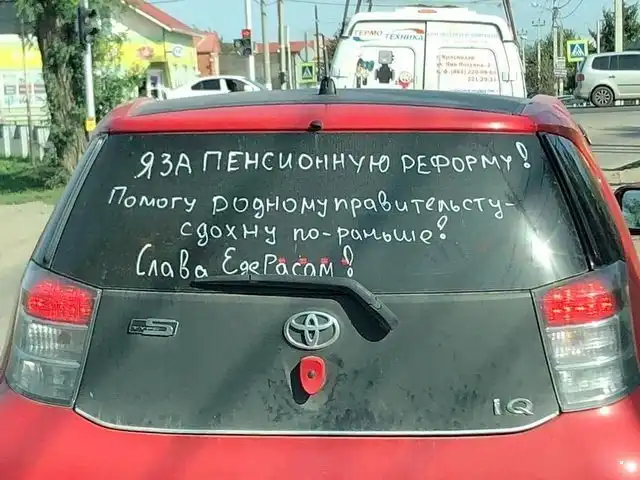 ТЕРМО ТЕХНИКА
Я ЗА ПЕНСИОННУЮ РЕФОРМУ!
Помогу родному правительсту-
сдохну по-раньше!
Слава ЕдеРасам!
TYPE S
IQ